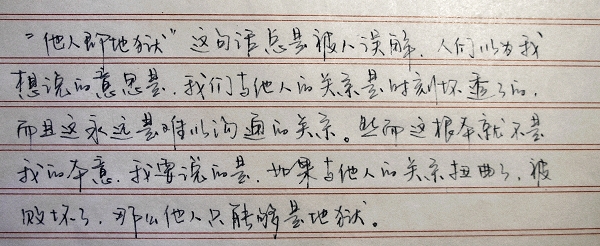 “他人即地狱”这句话总是被人误解，人们以为我
想说的意思是，我们与他人的关系是时刻坏透了的，
而且这永远是难以沟通的关系。然而这根本就不是
我的本意，我要说的是，如果与他人的关系扭曲了，被
败坏了，那么他人只能够是地狱。